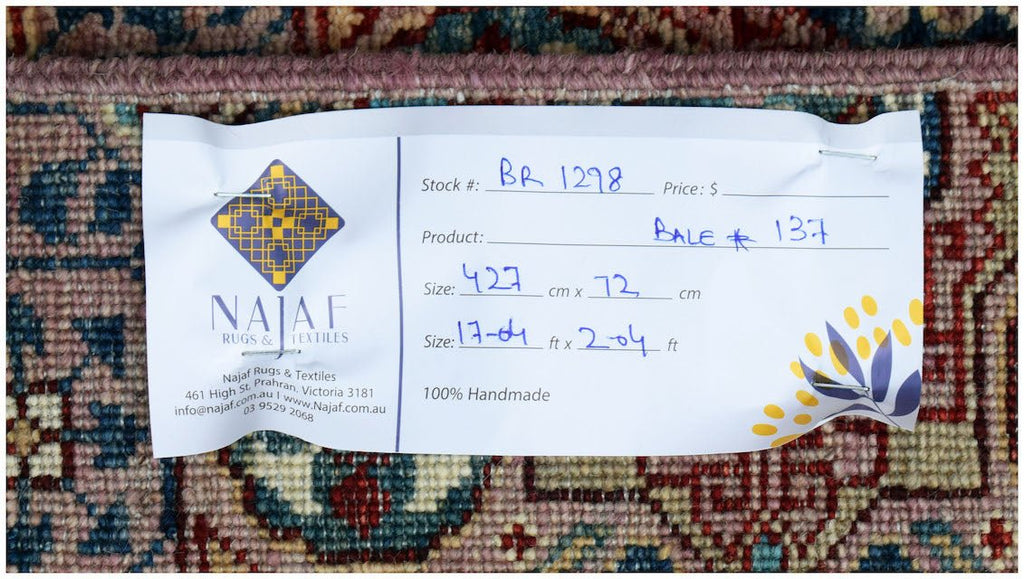 NAJAF
RUGS & TEXTILES
Najaf Rugs & Textiles
461 High St, Prahran, Victoria 3181
info@najaf.com.au | www.Najaf.com.au
03 9529 2068
Stock #: BR 1298 Price: $
Product: BALE # 137
Size: 427 cm x 72 cm
Size: 17-04 ft x 2-04 ft
100% Handmade